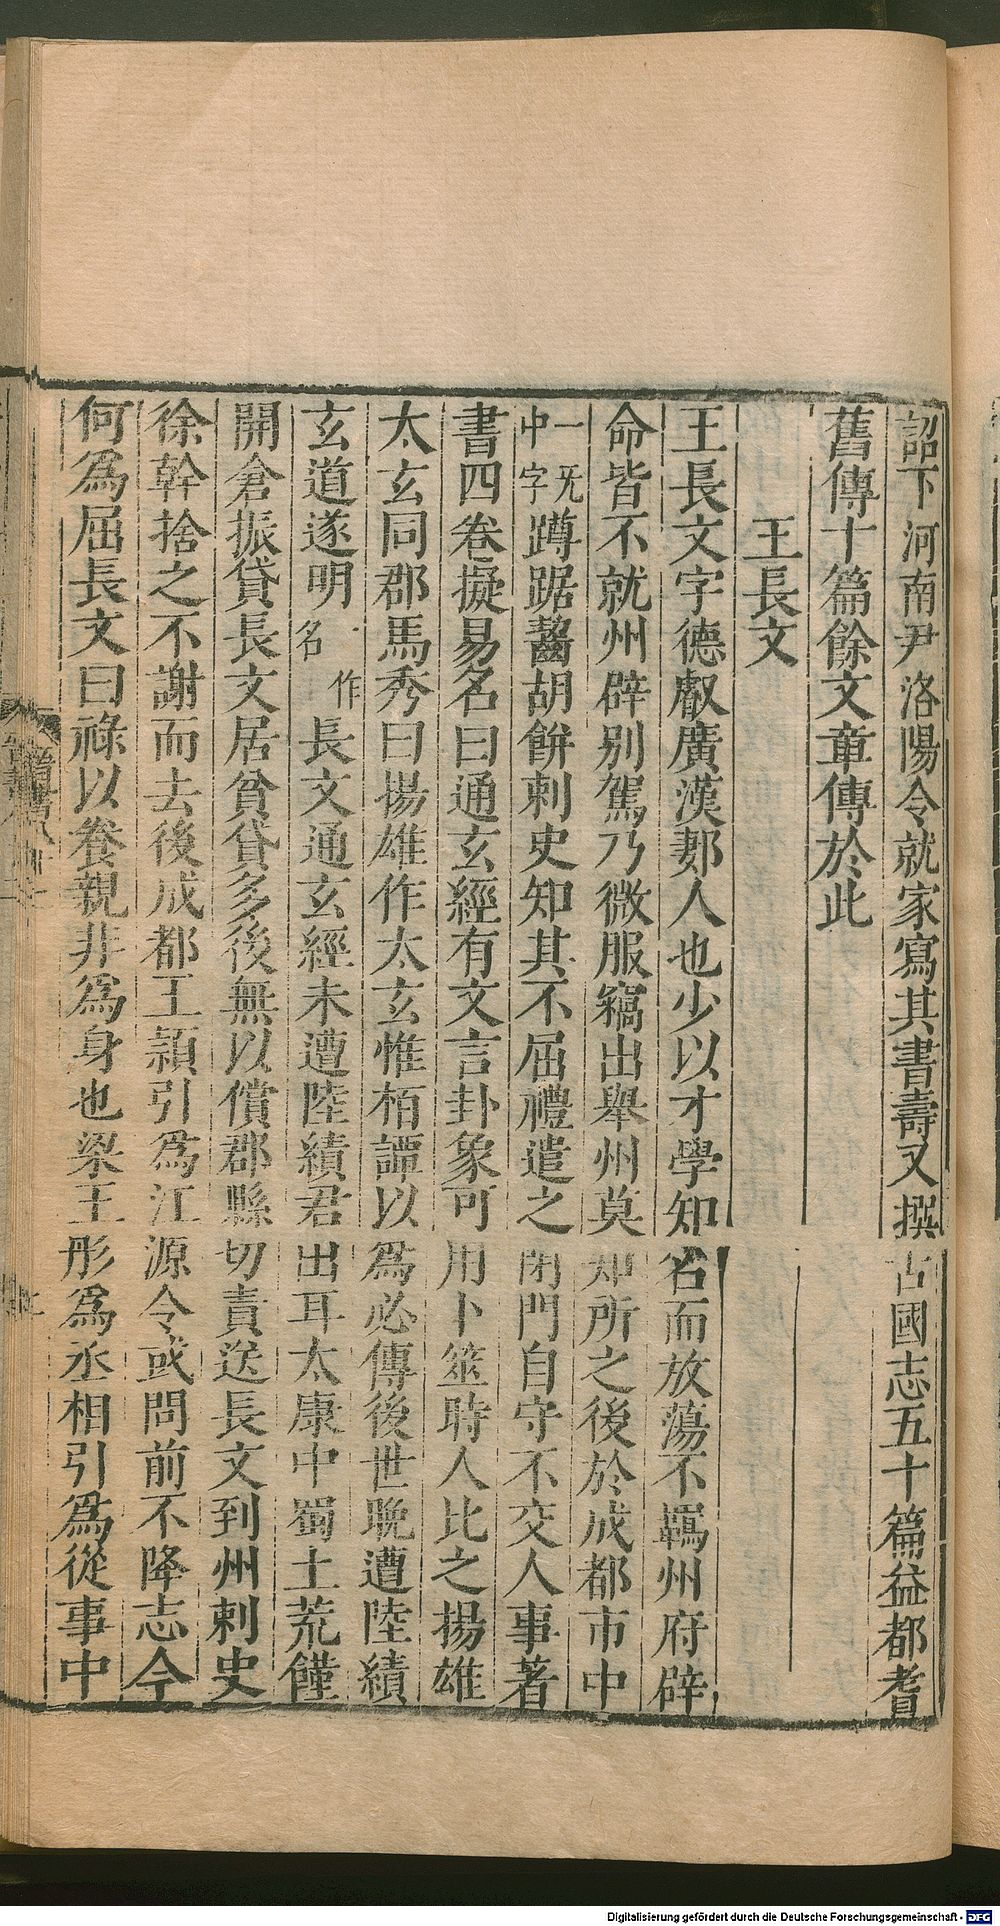 詔下河南尹洛陽令就家寫其書壽又撰古國志五十篇益都耆
舊傳十篇餘文章傳於此
王長文
王長文字德叡廣漢郪人也少以才學知名而放蕩不羈州府辟
命皆不就州辟別駕乃微服竊出舉州莫知所之後於成都市中
一无中字蹲踞齧胡餅刺史知其不屈禮遣之閉門自守不交人事著
書四卷擬易名曰通玄經有文言卦象可用卜筮時人比之揚雄
太玄同郡馬秀曰揚雄作太玄惟栢譚以為必傳後世晚遭陸績
玄道遂明一作名長文通玄經未遭陸績君出耳太康中蜀土荒饉
開倉振貸長文居貧貸多後無以償郡縣切責送長文到州刺史
徐幹捨之不謝而去後成都王頴引爲江源令或問前不降志今
何爲屈長文曰祿以養親非爲身也梁王肜爲丞相引爲從事中
Digitalisierung gefördert durch die Deutsche Forschungsgemeinschaft - DFG